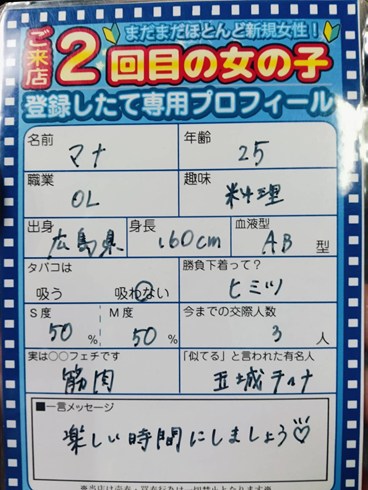 まだまだほとんど新規女性!
ご来店2回目の女の子
登録したて専用プロフィール
名前 マナ 年齢 25
職業 OL 趣味 料理
出身 広島県 身長 160cm 血液型 AB 型
タバコは 吸う 吸わない 勝負下着って? ヒミツ
S度 50 % M度 50 % 今までの交際人数 3 人
実は○○フェチです 筋肉 「似てる」と言われた有名人 玉城ティナ
■一言メッセージ
楽しい時間にしましょう♡